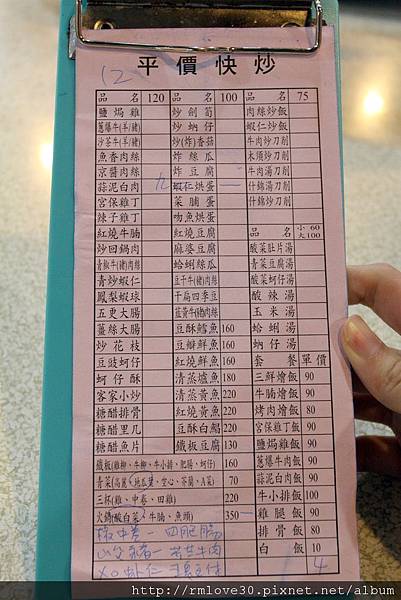 12
平價快炒
品名 120 品名 100 品名 75
鹽焗雞 炒劍筍 肉絲炒飯
蔥爆牛(羊/豬) 炒蚋仔 蝦仁炒飯
沙茶牛(羊/豬) 炒(炸)香菇 牛肉炒刀削
魚香肉絲 炸絲瓜 木須炒刀削
京醬肉絲 炸豆腐 牛肉湯刀削
蒜泥白肉 蝦仁烘蛋 什錦湯刀削
宮保雞丁 菜脯蛋 什錦炒刀削
辣子雞丁 吻魚烘蛋
紅燒牛腩 紅燒豆腐 品名 小60 大100
炒回鍋肉 麻婆豆腐 酸菜肚片湯
青椒牛(豬)肉絲 蛤蜊絲瓜 青菜豆腐湯
青炒蝦仁 豆干牛(豬)肉絲 酸菜蚵仔湯
鳳梨蝦球 干扁四季豆 酸辣湯
五更大腸 韮黃牛(豬)肉絲 玉米湯
薑絲大腸 豆酥鱈魚 160 蛤蜊湯
炒花枝 豆瓣鮮魚 160 蚋仔湯
豆豉蚵仔 紅燒鮮魚 160 套餐 單價
蚵仔酥 清蒸鱸魚 180 三鮮燴飯 90
客家小炒 清蒸黃魚 220 牛腩燴飯 90
糖醋排骨 紅燒黃魚 220 烤肉燴飯 80
糖醋里几 豆酥白鯧 220 宮保雞丁飯 90
糖醋魚片 鐵板豆腐 130 鹽焗雞飯 90
鐵板(雞柳、牛柳、牛小排、肥腸、蚵仔) 160 蔥爆牛肉飯 90
青菜(高麗、地瓜葉、空心、芥蘭、A菜) 70 蒜泥白肉飯 90
三杯(雞、中卷、田雞) 220 牛小排飯 100
火鍋(酸白菜、牛腩、魚頭) 350 雞腿飯 90
排骨飯 80
白飯 10
4
http://rmlove30.pixnet.net/album